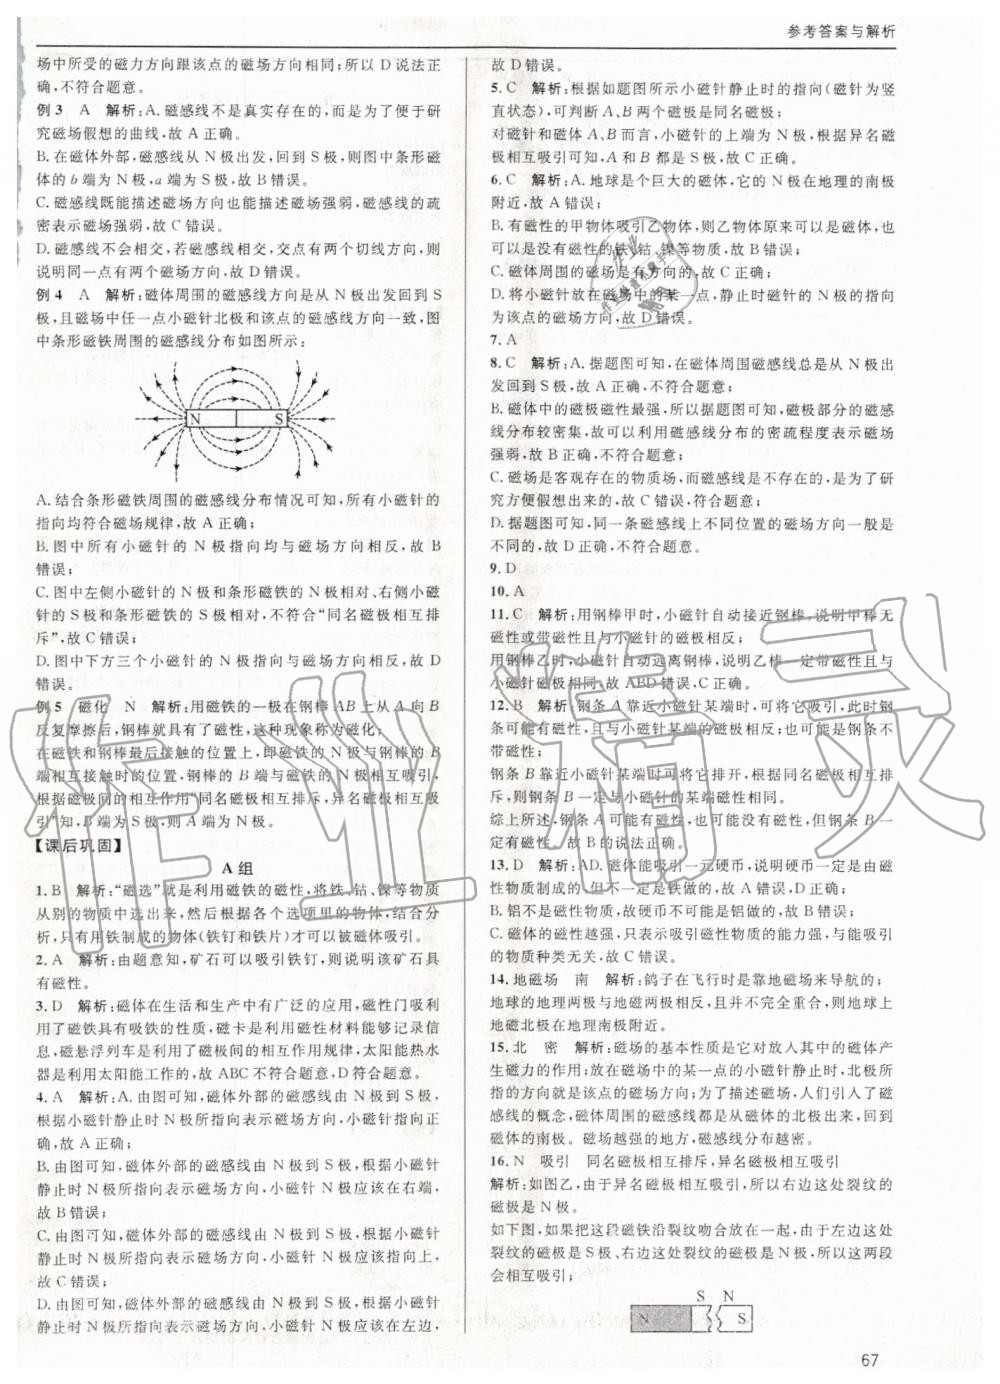 参考答案与解析
场中所受的磁力方向跟该点的磁场方向相同;所以 D 说法正
确,不符合题意。
例 3 A 解析:A. 磁感线不是真实存在的,而是为了便于研
究磁场假想的曲线,故 A 正确。
B. 在磁体外部,磁感线从 N 极出发,回到 S 极,则图中条形磁
体的 b 端为 N 极,a 端为 S 极,故 B 错误。
C. 磁感线既能描述磁场方向也能描述磁场强弱,磁感线的疏
密表示磁场强弱,故 C 错误。
D. 磁感线不会相交,若磁感线相交,交点有两个切线方向,则
说明同一点有两个磁场方向,故 D 错误。
例 4 A 解析:磁体周围的磁感线方向是从 N 极出发回到 S
极,且磁场中任一点小磁针北极和该点的磁感线方向一致,图
中条形磁铁周围的磁感线分布如图所示:
N S
A. 结合条形磁铁周围的磁感线分布情况可知,所有小磁针的
指向均符合磁场规律,故 A 正确;
B. 图中所有小磁针的 N 极指向均与磁场方向相反,故 B
错误;
C. 图中左侧小磁针的 N 极和条形磁铁的 N 极相对、右侧小磁
针的 S 极和条形磁铁的 S 极相对,不符合“同名磁极相互排
斥”,故 C 错误;
D. 图中下方三个小磁针的 N 极指向与磁场方向相反,故 D
错误。
例 5 磁化 N 解析:用磁铁的一极在钢棒 AB 上从 A 向 B
反复摩擦后,钢棒就具有了磁性,这种现象称为磁化;
在磁铁和钢棒最后接触的位置上,即磁铁的 N 极与钢棒的 B
端相互接触时的位置,钢棒的 B 端与磁铁的 N 极相互吸引,
根据磁极间的相互作用“同名磁极相互排斥,异名磁极相互吸
引”知,B 端为 S 极,则 A 端为 N 极。
【课后巩固】
A 组
1. B 解析:“磁选”就是利用磁铁的磁性,将铁、钴、镍等物质
从别的物质中选出来,然后根据各个选项里的物体,结合分
析,只有用铁制成的物体(铁钉和铁片)才可以被磁体吸引。
2. A 解析:由题意知,矿石可以吸引铁钉,则说明该矿石具
有磁性。
3. D 解析:磁体在生活和生产中有广泛的应用,磁性门吸利
用了磁铁具有吸铁的性质,磁卡是利用磁性材料能够记录信
息,磁悬浮列车是利用了磁极间的相互作用规律,太阳能热水
器是利用太阳能工作的,故 ABC 不符合题意,D 符合题意。
4. A 解析:A. 由图可知,磁体外部的磁感线由 N 极到 S 极,
根据小磁针静止时 N 极所指向表示磁场方向,小磁针指向正
确,故 A 正确;
B. 由图可知,磁体外部的磁感线由 N 极到 S 极,根据小磁针
静止时 N 极所指向表示磁场方向,小磁针 N 极应该在右端,
故 B 错误;
C. 由图可知,磁体外部的磁感线由 N 极到 S 极,根据小磁针
静止时 N 极所指向表示磁场方向,小磁针 N 极应该指向上,
故 C 错误;
D. 由图可知,磁体外部的磁感线由 N 极到 S 极,根据小磁针
静止时 N 极所指向表示磁场方向,小磁针 N 极应该在左边,
故 D 错误。
5. C 解析:根据如题图所示小磁针静止时的指向(磁针为竖
直状态),可判断 A、B 两个磁极是同名磁极;
对磁针和磁体 A、B 而言,小磁针的上端为 N 极,根据异名磁
极相互吸引可知,A 和 B 都是 S 极,故 C 正确。
6. C 解析:A. 地球是个巨大的磁体,它的 N 极在地理的南极
附近,故 A 错误;
B. 有磁性的甲物体吸引乙物体,则乙物体原来可以是磁体,也
可以是没有磁性的铁、钴、镍等物质,故 B 错误;
C. 磁体周围的磁场是有方向的,故 C 正确;
D. 将小磁针放在磁场中的某一点,静止时磁针的 N 极的指向
为该点的磁场方向,故 D 错误。
7. A
8. C 解析:A. 据题图可知,在磁体周围磁感线总是从 N 极出
发回到 S 极,故 A 正确,不符合题意;
B. 磁体中的磁极磁性最强,所以据题图可知,磁极部分的磁感
线分布较密集,故可以利用磁感线分布的密疏程度表示磁场
强弱,故 B 正确,不符合题意;
C. 磁场是客观存在的物质场,而磁感线是不存在的,是为了研
究方便假想出来的,故 C 错误,符合题意;
D. 据题图可知,同一条磁感线上不同位置的磁场方向一般是
不同的,故 D 正确,不符合题意。
9. D
10. A
11. C 解析:用钢棒甲时,小磁针自动接近钢棒,说明甲棒无
磁性或带磁性且与小磁针的磁极相反;
用钢棒乙时,小磁针自动远离钢棒,说明乙棒一定带磁性且与
小磁针磁极相同,故 ABD 错误,C 正确。
12. B 解析:钢条 A 靠近小磁针某端时,可将它吸引,此时钢
条可能有磁性,且与小磁针某端的磁极相反;也可能是钢条不
带磁性;
钢条 B 靠近小磁针某端时可将它排开,根据同名磁极相互排
斥,则钢条 B 一定与小磁针的某端磁性相同。
综上所述,钢条 A 可能有磁性,也可能没有磁性,但钢条 B 一
定有磁性。故 B 的说法正确。
13. D 解析:AD. 磁体能吸引一元硬币,说明硬币一定是由磁
性物质制成的,但不一定是铁做的,故 A 错误,D 正确;
B. 铝不是磁性物质,故硬币不可能是铝做的,故 B 错误;
C. 磁体的磁性越强,只表示吸引磁性物质的能力强,与能吸引
的物质种类无关,故 C 错误。
14. 地磁场 南 解析:鸽子在飞行时是靠地磁场来导航的;
地球的地理两极与地磁两极相反,且并不完全重合,则地球上
地磁北极在地理南极附近。
15. 北 密 解析:磁场的基本性质是它对放入其中的磁体产
生磁力的作用;放在磁场中的某一点的小磁针静止时,北极所
指的方向就是该点的磁场方向;为了描述磁场,人们引入了磁
感线的概念,磁体周围的磁感线都是从磁体的北极出来,回到
磁体的南极。磁场越强的地方,磁感线分布越密。
16. N 吸引 同名磁极相互排斥,异名磁极相互吸引
解析:如图乙,由于异名磁极相互吸引,所以右边这处裂纹的
磁极是 N 极。
如下图,如果把这段磁铁沿裂纹吻合放在一起,由于左边这处
裂纹的磁极是 S 极、右边这处裂纹的磁极是 N 极,所以这两段
会相互吸引;
S N
N S
67
作业精灵